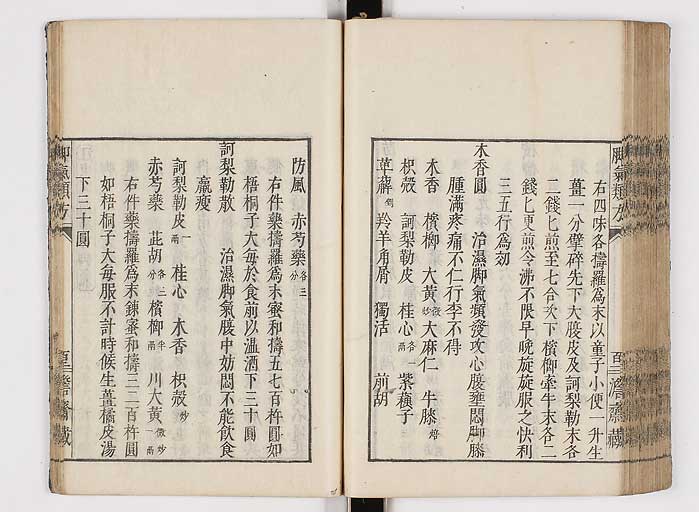 脚氣類方
右四味各擣羅為末以童子小便一升生
薑一分擘碎先下大腹皮及訶梨勒末各
二錢匕煎至七合次下檳榔牽牛末各二
錢匕更煎令沸不限早晚旋旋服之快利
三五行為効
木香圓 治濕脚氣頻發攻心腹壅悶脚膝
腫滿疼痛不仁行李不得
木香 檳榔 大黃微炒 大麻仁 牛膝焙
枳殻 訶梨勒皮 桂心各一兩 紫蘓子
萆薢剉 羚羊角屑 獨活 前胡
防風 赤芍藥各三分
右件藥擣羅為末蜜和擣五七百杵圓如
梧桐子大每於食前以温酒下三十圓
訶梨勒散 治濕脚氣腹中妨悶不能飲食
羸瘦
訶梨勒皮一兩 桂心 木香 枳殻炒
赤芍藥 茈胡各三分 檳榔半兩 川大黃微炒一兩
右件藥擣羅為末鍊蜜和擣三二百杵圓
如梧桐子大每服不計時候生薑橘皮湯
下三十圓
脚氣類方